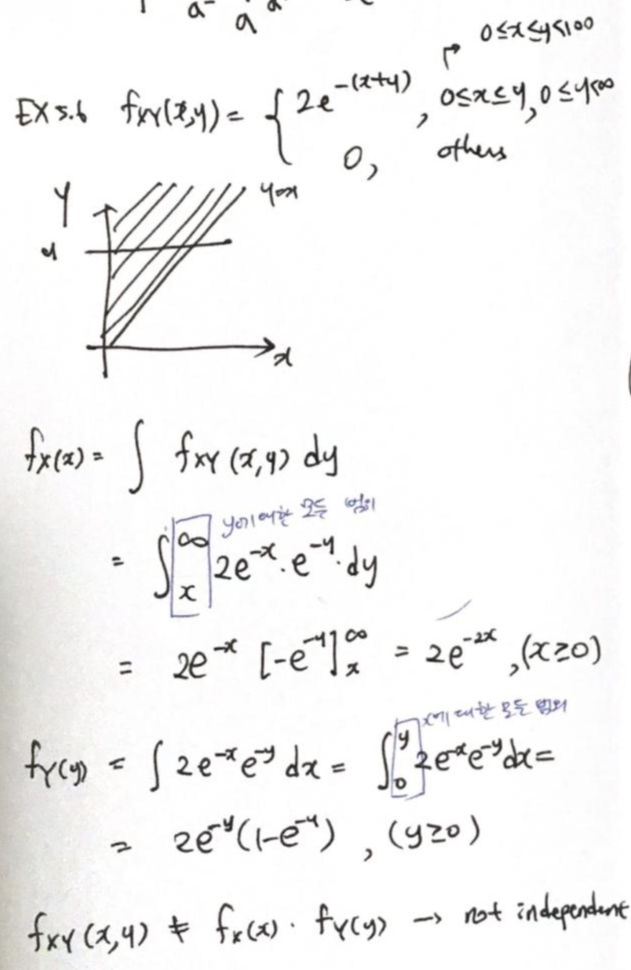 a⁻ a a
0≤x≤y<100
EX 5.6 fxy(x,y) = { 2e^-(x+y), 0≤x≤y, 0≤y<∞
0, others
Y
y
x
fx(x) = ∫ fxy (x,y) dy
y에 대한 모든 범위
= ∫_x^∞ 2e^-x · e^-y · dy
= 2e^-x [-e^-y]_x^∞ = 2e^-2x, (x≥0)
x에 대한 모든 범위
fY(y) = ∫ 2e^-x e^-y dx = ∫_0^y 2e^-x e^-y dx =
= 2e^-y (1-e^-y), (y≥0)
fxy (x,y) ≠ fx(x) · fY(y) → not independent